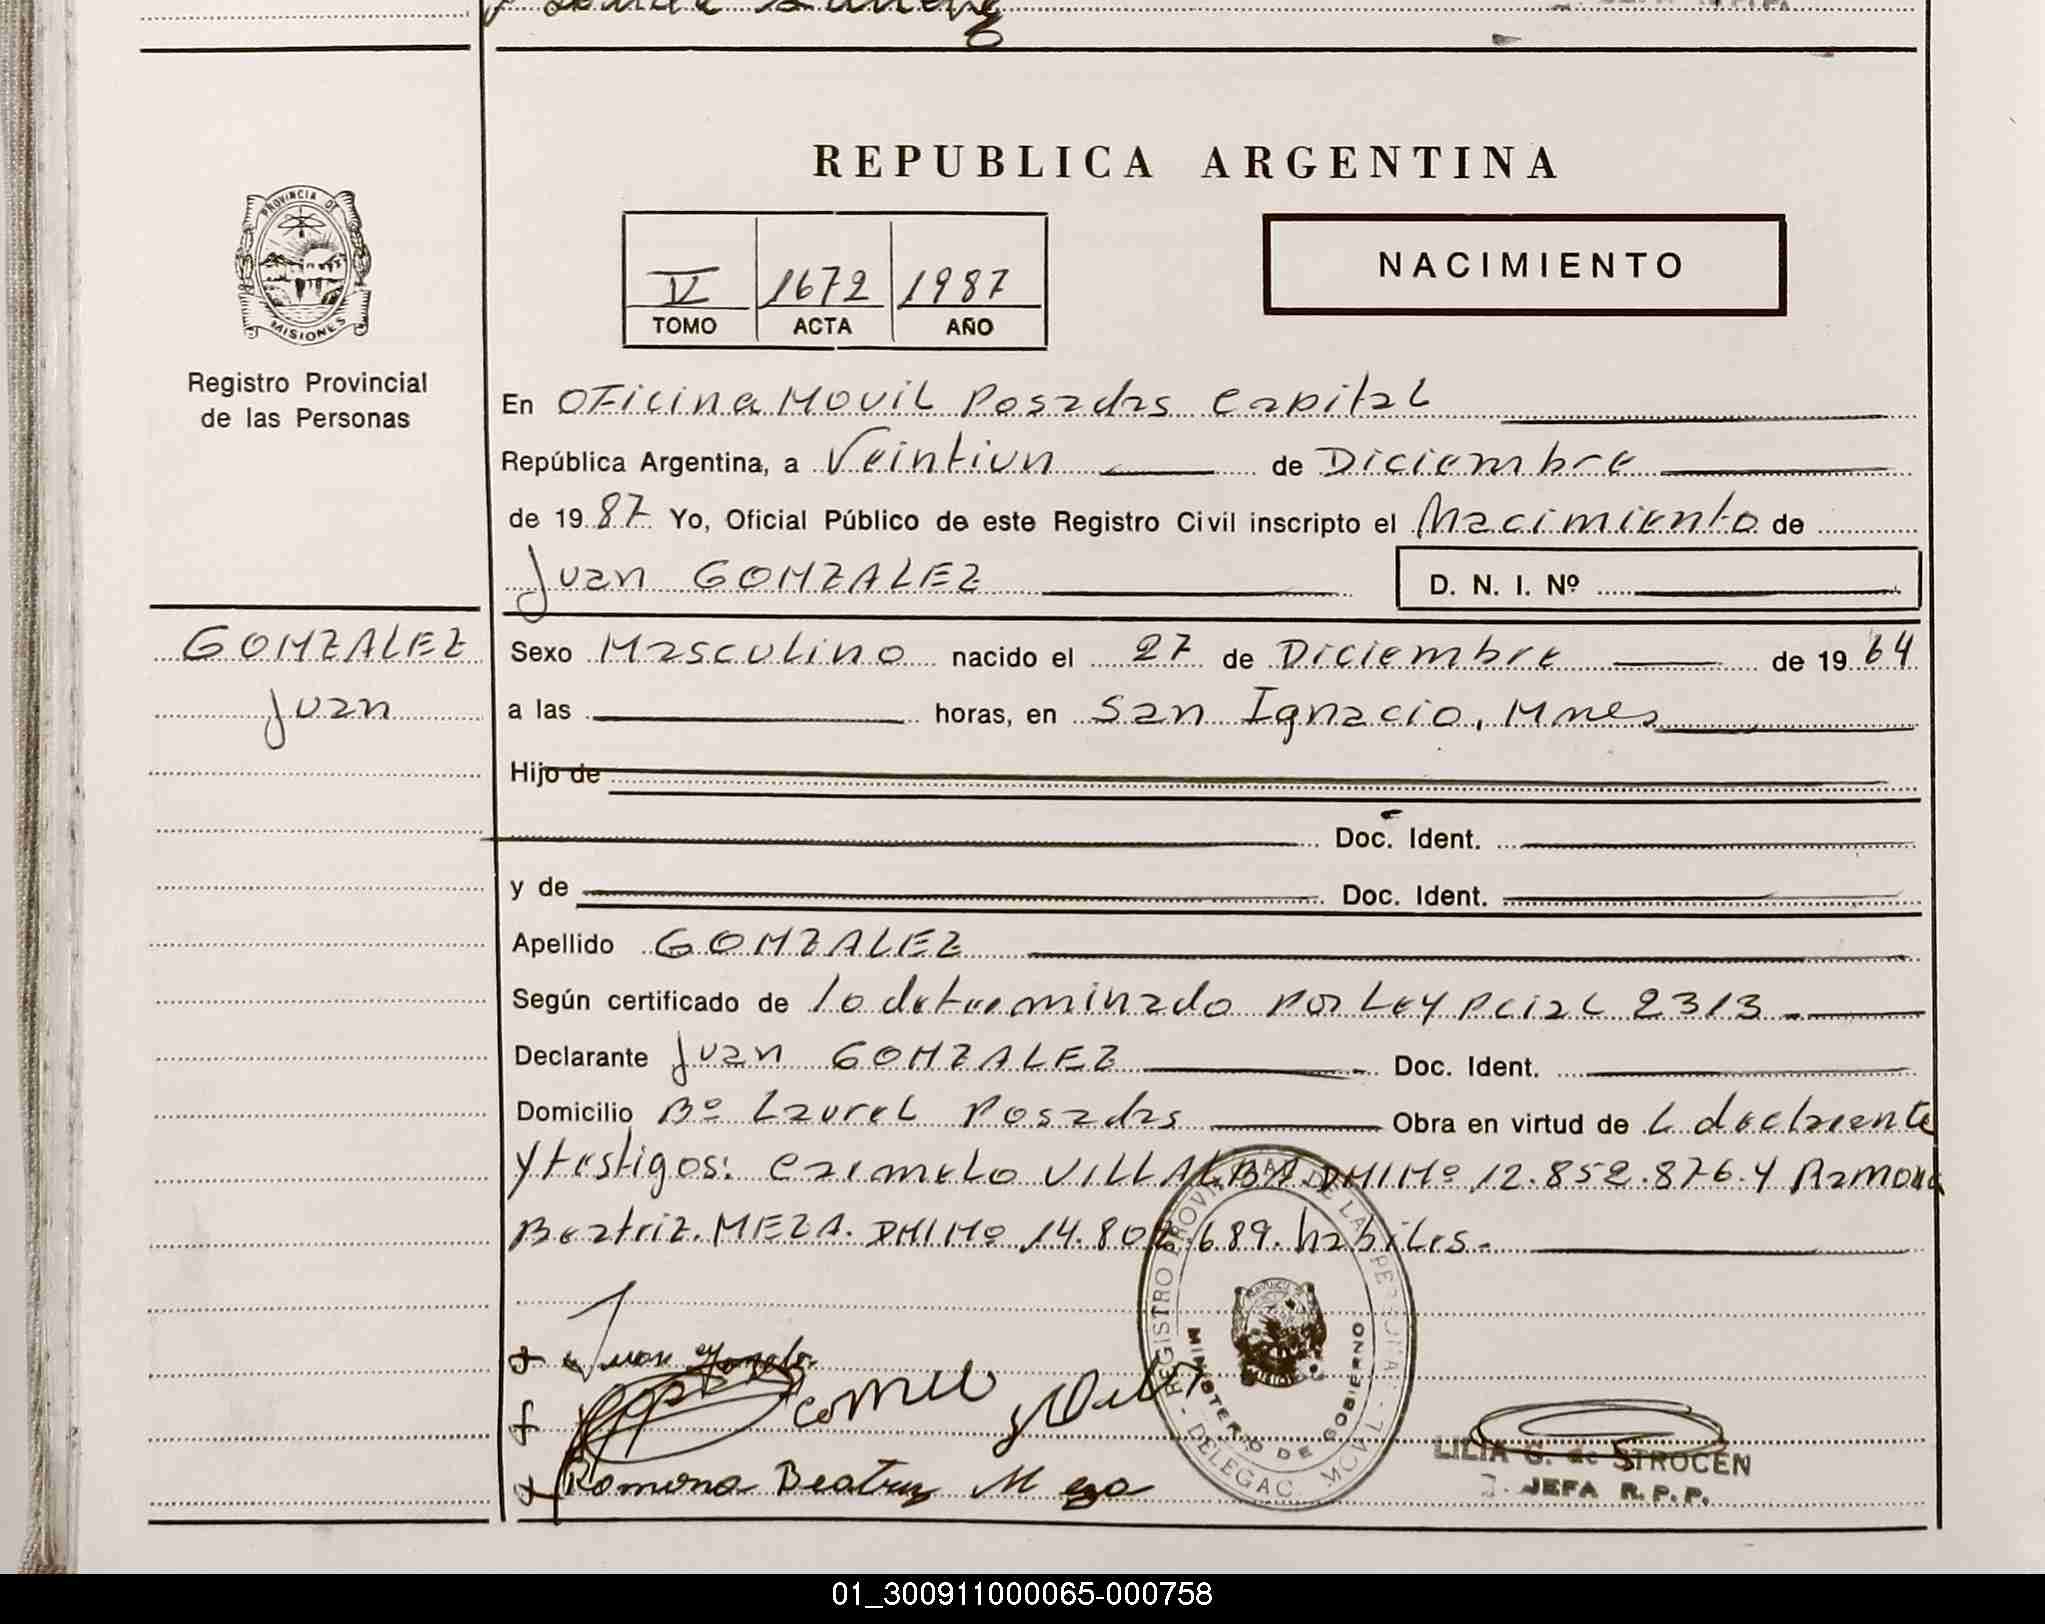 REPUBLICA ARGENTINA
PROVINCIA DE
MISIONES
Registro Provincial
de las Personas
V 1672 1987
TOMO ACTA AÑO
NACIMIENTO
En Oficina Movil Posadas Capital
República Argentina, a Veintiun de Diciembre
de 1987 Yo, Oficial Público de este Registro Civil inscripto el Nacimiento de
Juan GONZALEZ D. N. I. Nº
GONZALEZ
Juan
Sexo Masculino nacido el 27 de Diciembre de 1964
a las horas, en San Ignacio, Mnes
Hijo de
Doc. Ident.
y de Doc. Ident.
Apellido GONZALEZ
Según certificado de lo determinado por Ley Pcial 2313.
Declarante Juan GONZALEZ Doc. Ident.
Domicilio Bº Laurel Posadas Obra en virtud de
y testigos: Carmelo VILLALBA DNI Nº 12.852.876. y Ramona
Beatriz MEZA. DNI Nº 14.80 .689. habiles.
Juan
Ramona Beatriz Meza
REGISTRO PROVINCIAL DE LAS PERSONAS
MINISTERIO DE GOBIERNO
DELEGAC. MOVIL
LILIA G. de STROCEN
JEFA R.P.P.
01_300911000065-000758